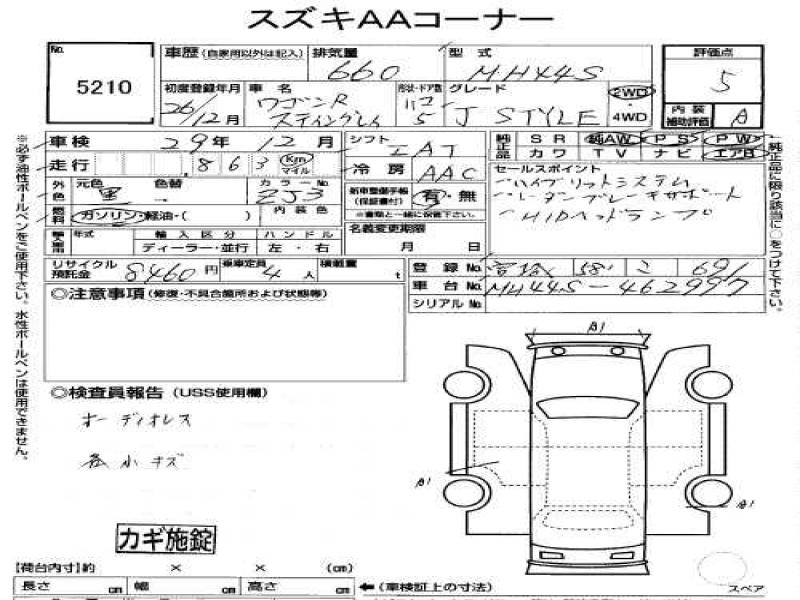 スズキAAコーナー
No. 5210
車歴 (自家用以外は記入) 排気量 660 型式 MH44S 評価点 5
初度登録年月 26/12月 車名 ワゴンR スティングレイ 形状・ドア数 5 グレード J STYLE 2WD 4WD 内装補助評価 A
車検 29年 12月 シフト IAT 純正品 SR 純AW PS PW
カワ TV ナビ エアB
走行 863 Km マイル 冷房 AAC セールスポイント
外色 元色 黒 色替 カラーNo. ZJ3 新車整備手帳(保証書付) 有・無 ハイブリットシステム
※書類と一緒に保管下さい。 レーダーブレーキサポート
燃料 ガソリン・軽油・( ) 内装色 HIDヘッドランプ
輸入車 年式 輸入区分 ディーラー・並行 ハンドル 左・右 名義変更期限 月 日
リサイクル預託金 8460円 乗車定員 4人 積載量 t 登録No. 581 こ 691
車台No. MH44S-462997
シリアルNo.
◎注意事項 (修復・不具合箇所および状態等)
◎検査員報告 (USS使用欄)
オーディオレス
各小キズ
A1
A1
A1
カギ施錠
【荷台内寸】約 × × (cm)
長さ cm 幅 cm 高さ cm ←(車検証上の寸法)
スペア
※必ず油性ボールペンをご使用下さい。水性ボールペンは使用できません。
純正品に限り該当に○をつけて下さい。